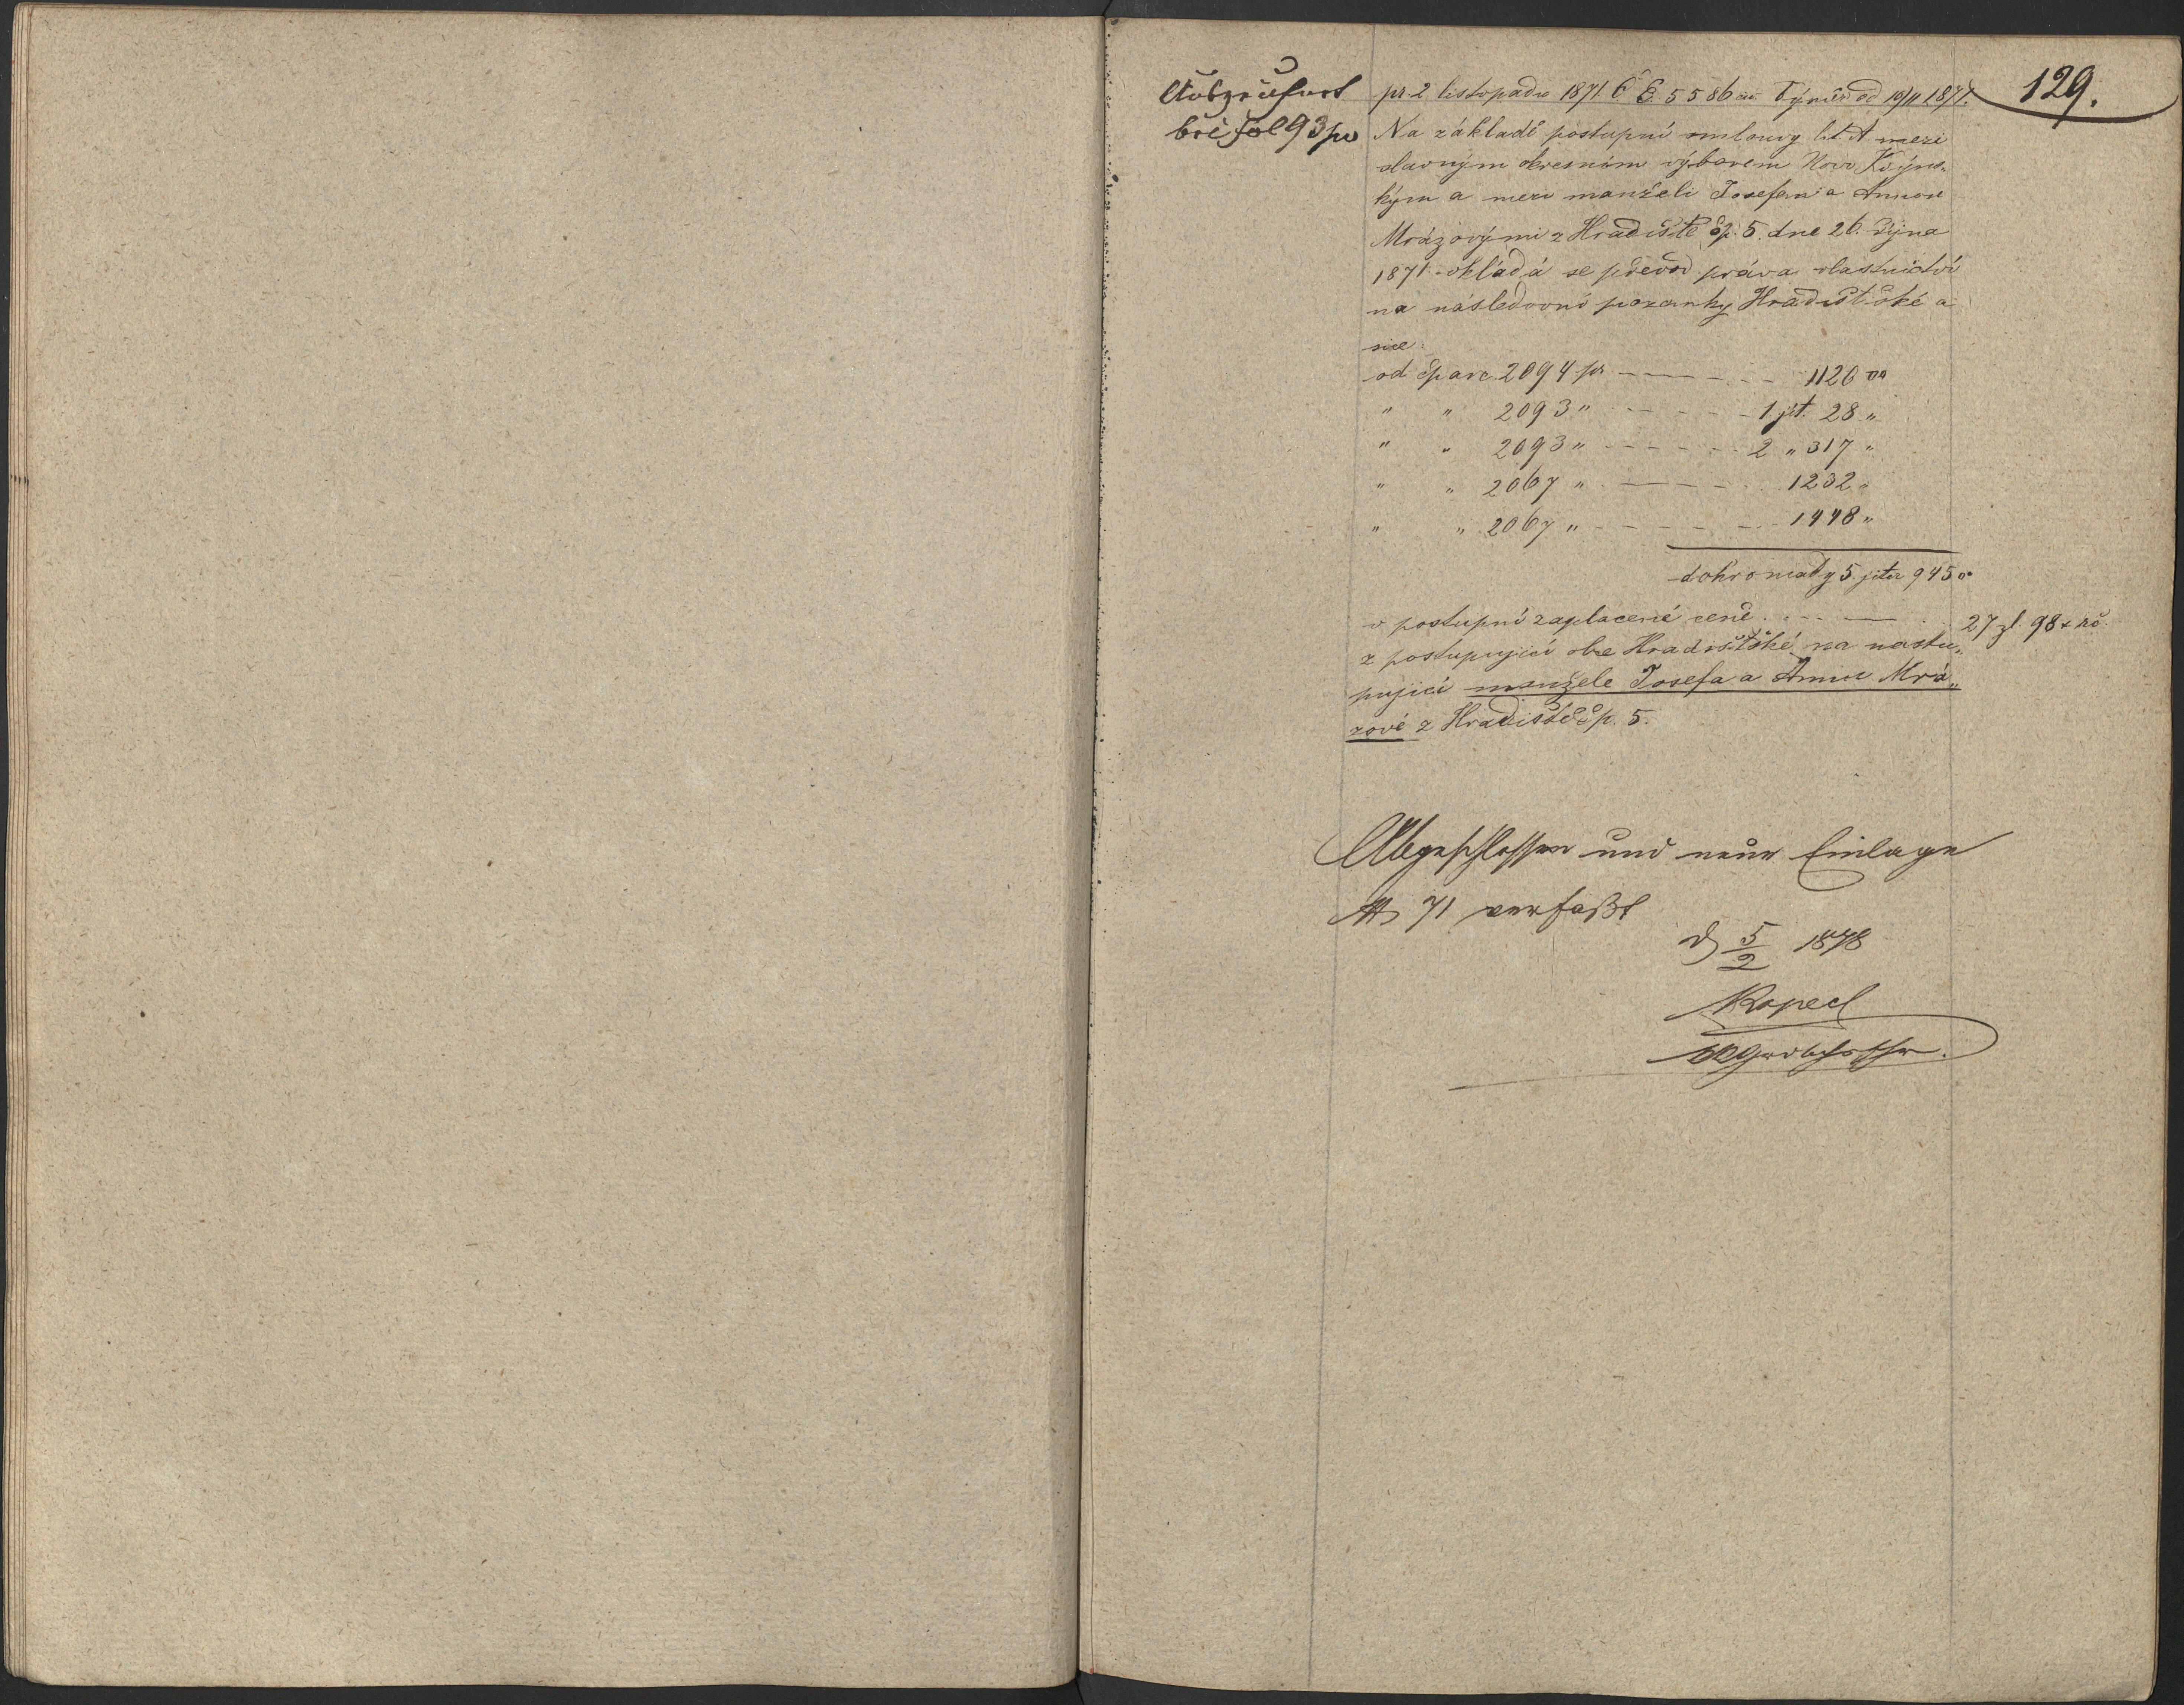 129.
bei fol 93 pv
pr. 2 listopadu 1871 Č. E. 5586 od 19/11 1871.
Na základě postupní smlouvy lit A mezi
slavným okresním výborem Novo Kdýns-
kým a mezi manželi Josefem a Annou
Mrázovými z Hradiště čp. 5. dne 26. října
1871 vkládá se převod práva vlastnictví
na následovní pozemky Hradištské a
sice:
od čparc. 2094 pr — — — 1126 □°
" " 2093 " — — — 1 jit. 28 "
" " 2093 " — — — 2 " 317 "
" " 2067 " — — — 1232 "
" " 2067 " — — — 1448 "
dohromady 5 jiter 945 □°
v postupní zaplacené ceně . . . — . 27 zl. 98 x rč.
z postupující obce Hradištské na nastu-
pující manžele Josefa a Annu Mrá-
zové z Hradiště čp. 5.
Abgeschlossen und neue Einlage
No 71 verfaßt
d 5/2 1878
Kopecl